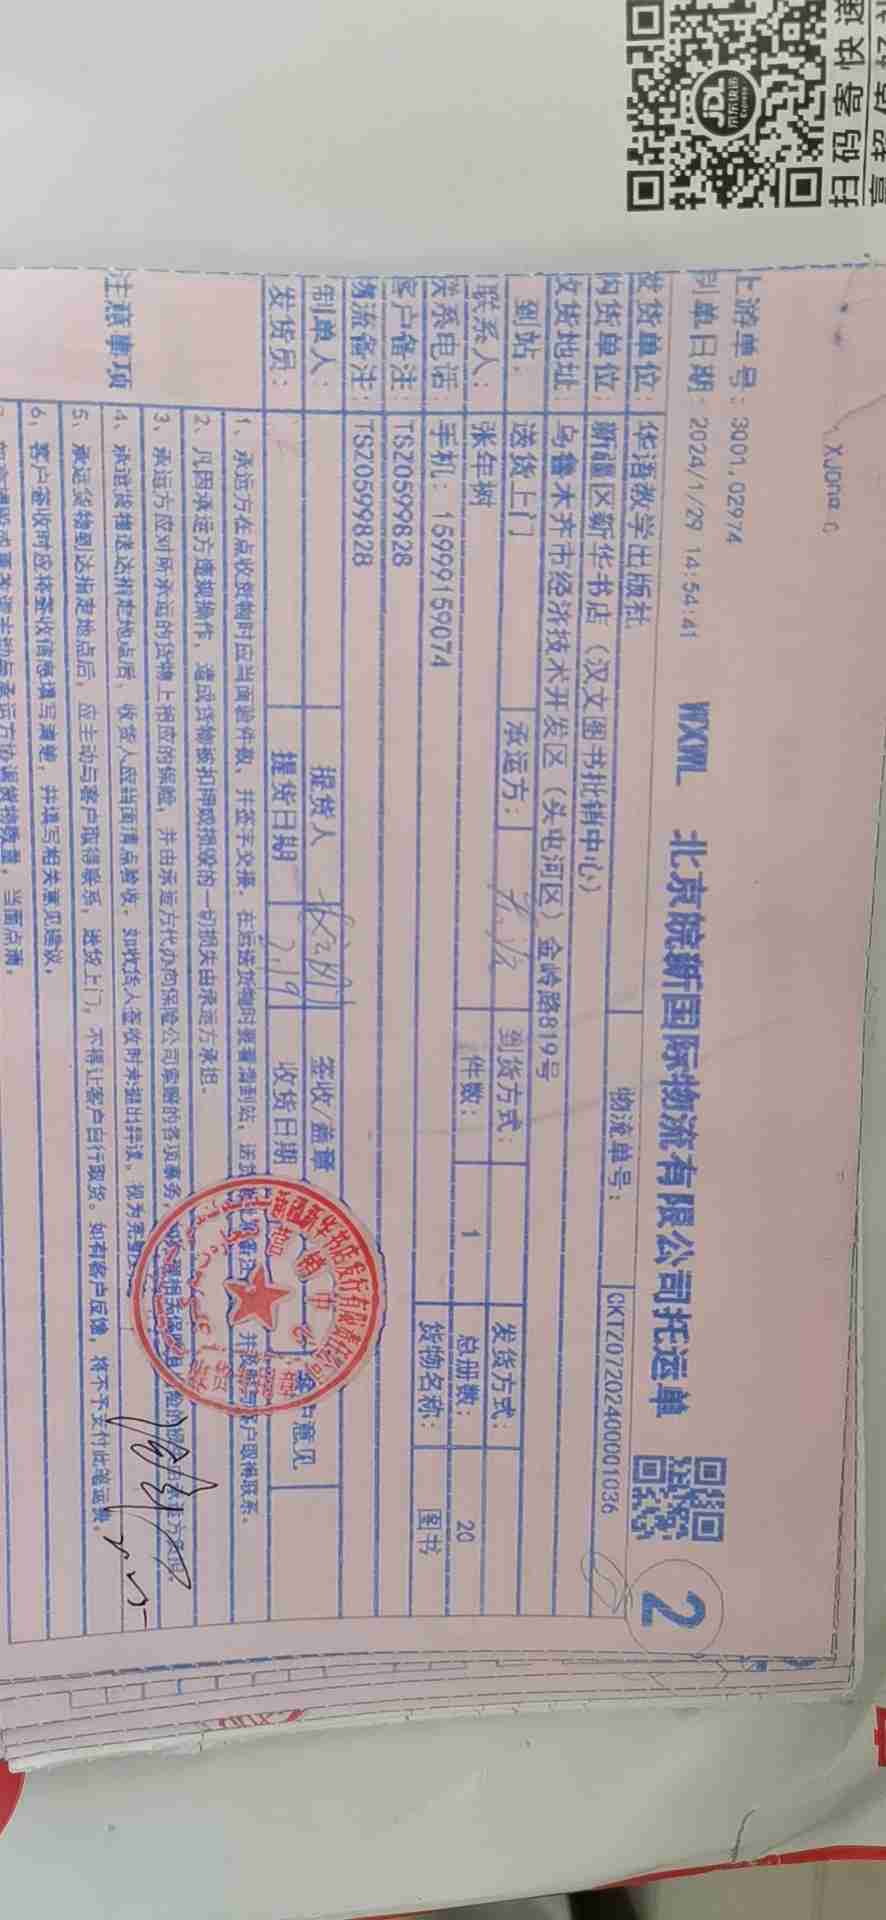 扫码寄快递
JDL
京东快递
EXPRESS
上游单号：3Q01,02974
制单日期：2024/1/29 14:54:41
WXWL 北京皖新国际物流有限公司托运单
2
发货单位：华语教学出版社
物流单号：CKTZ0720240001036
收货单位：新疆区新华书店（汉文图书批销中心）
收货地址：乌鲁木齐市经济技术开发区（头屯河区）金岭路819号
到站：送货上门
承运方：
到货方式：
发货方式：
联系人：张年树
件数：1
总册数：20
联系电话：手机：15999159074
货物名称：图书
客户备注：TSZ0599828
物流备注：TSZ0599828
制单人：
提货人
签收/盖章
客户意见
发货员：
提货日期 2.19
收货日期
注意事项
1、承运方在点收货物时应当面验件数，并签字交接。在运送货物时要看清到站、送货
并提前与客户取得联系。
2、凡因承运方违规操作，造成货物被扣押或损毁的一切损失由承运方承担。
3、承运方应对所承运的货物上相应的保险，并由承运方代办向保险公司索赔的各项事务，
4、承运货物送达指定地点后，收货人应当面清点验收。如收货人签收时未提出异议，视为完整
5、承运货物到达指定地点后，应主动与客户取得联系，送货上门，不得让客户自行取货。如有客户反馈，将不予支付此笔运费。
6、客户签收时应将签收信息填写清楚，并填写相关意见建议。